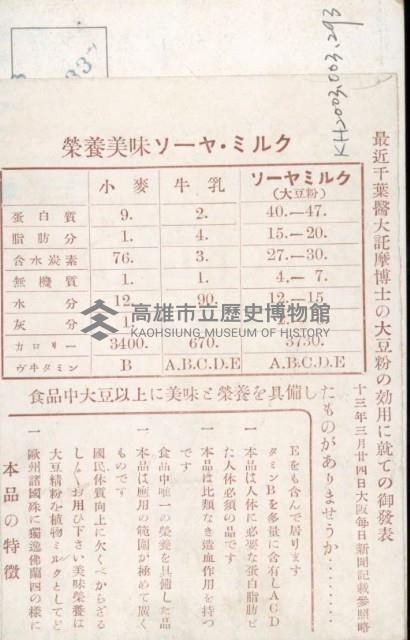 KH2003.003.293
33
榮養美味ソーヤ・ミルク
小麥 牛乳 ソーヤミルク
(大豆粉)
蛋白質 9. 2. 40.—47.
脂肪分 1. 4. 15.—20.
含水炭素 76. 3. 27.—30.
無機質 1. 1. 4.— 7.
水分 12. 90. 12.—15
灰分
カロリー 3400. 670. 3730.
ヴヰタミン B A.B.C.D.E A.B.C.D.E
高雄市立歷史博物館
KAOHSIUNG MUSEUM OF HISTORY
最近千葉醫大託摩博士の大豆粉の効用に就ての御發表
十三年三月廿四日大阪每日新聞記載參照略
食品中大豆以上に美味と榮養を具備し
たものがありませうか
Eをも含んで居ります
タミンBを多量に含有しACD
一 本品は人体に必要な蛋白脂肪ビ
た人体必須の品です
一 本品は比類なき造血作用を持つ
です
食品中唯一の榮養を具備した品
一 本品は應用の範圍が極めて廣く
ものです
國民体質向上に欠くべからざる
しくお用ひ下さい美味榮養は
大豆精粉を植物ミルクとしてど
歐州諸國殊に獨逸佛蘭四の樣に
一
本品の特徵